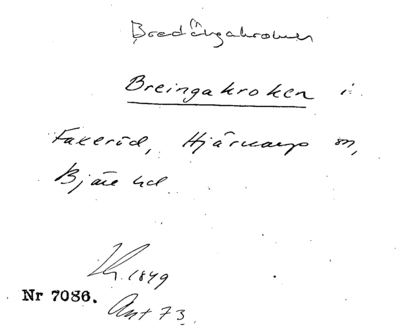 Bredängakroken
Breingakroken i
Faxeröd, Hjärnarp sn,
Bjäre hd
1849
Nr 7086.
Ant 73.